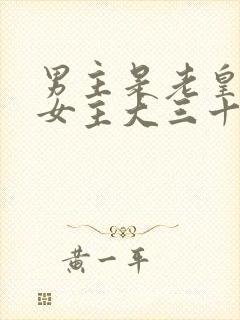 男主是老皇
女主大三十
黄一平